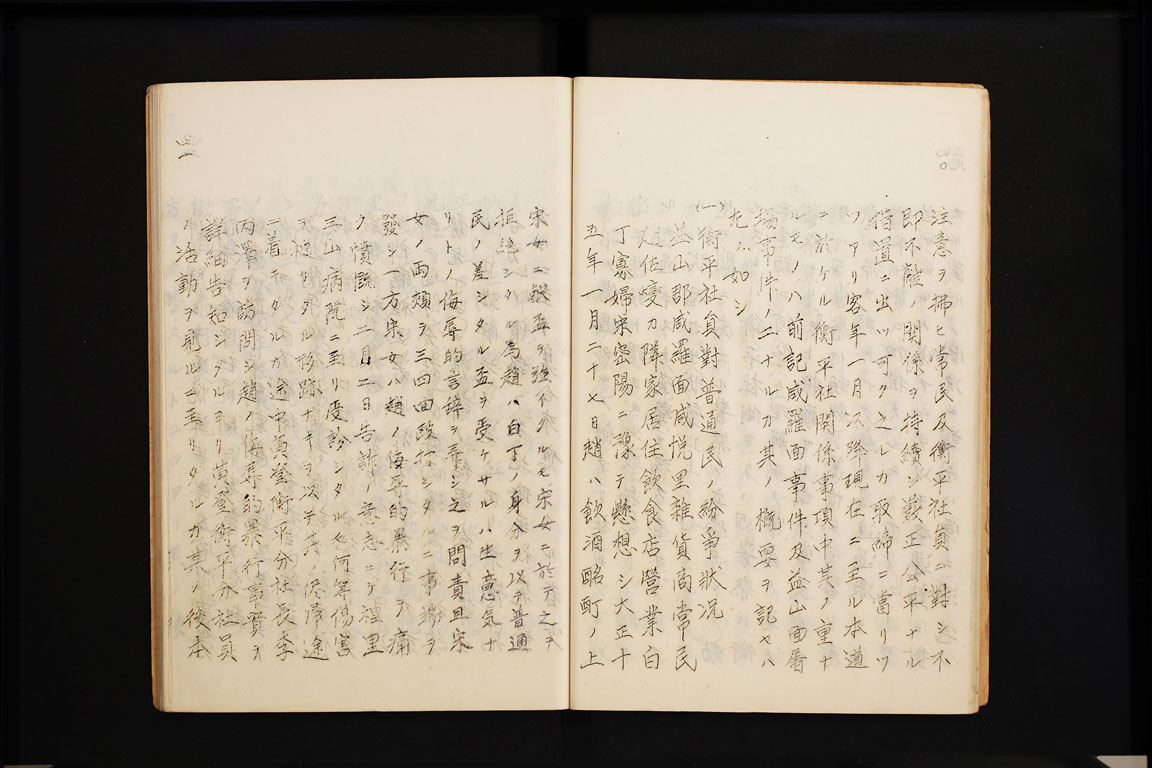 四〇
注意ヲ拂ヒ常民及衡平社員ニ對シ不
即不離ノ關係ヲ持續シ嚴正公平ナル
措置ニ出ツ可ク之レカ取締ニ當リツ
ツアリ客年一月以降現在ニ至ル本道
ニ於ケル衡平社關係事項中其ノ重ナ
ルモノハ前記咸羅面事件及益山面屠
場事件ノ二ナルカ其ノ概要ヲ記セハ
左ノ如シ
(一)衡平社員對普通民ノ紛爭狀況
益山郡咸羅面咸悅里雜貨商常民
趙佐變カ隣家居住飲食店營業白
丁寡婦宋密陽ニ豫テ懸想シ大正十
五年一月二十七日趙ハ飲酒酩酊ノ上
四一
宋女ニ献盃ヲ强イタルモ宋女ニ於テ之ヲ
拒絶シタル為趙ハ白丁ノ身分ヲ以テ普通
民ノ差シタル盃ヲ受ケサルハ生意気ナ
リトノ侮辱的言辞ヲ弄シ之ヲ問責且宋
女ノ両頬ヲ三四回殴打シタルニ事端ヲ
發シ一方宋女ハ趙ノ侮辱的暴行ヲ痛
ク憤慨シ二月二日告訴ノ意志ニテ裡里
三山病院ニ至リ受診シタルモ何等傷害
ヲ被リタル形跡ナキヲ以テ其ノ侭帰途
ニ着キタルカ途中黄登衡平分社長李
丙澤ヲ訪問シ趙ノ侮辱的暴行事實ヲ
詳細告知シタルヨリ黄登衡平分社員
ノ活動ヲ見ルニ至リタルカ其ノ後本